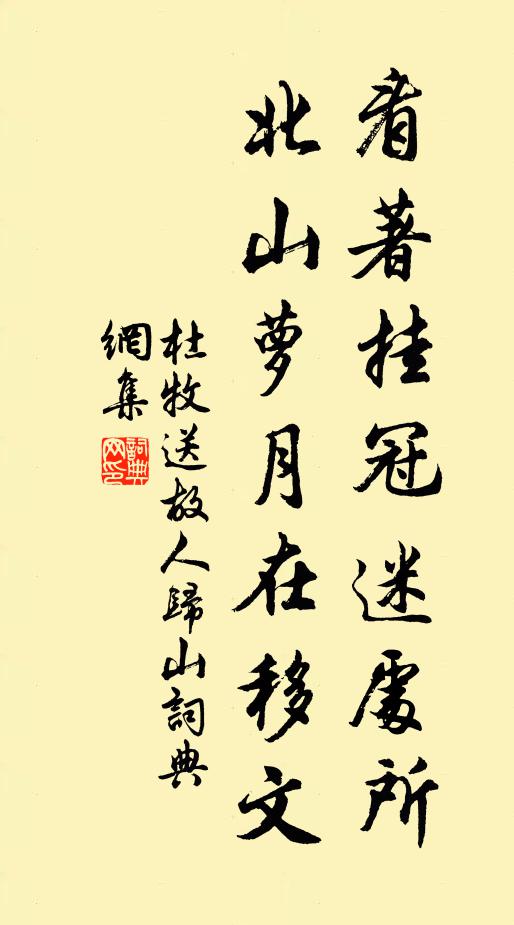 看著挂冠迷處所
北山萝月在移文
杜牧送故人歸山詞典
網集
詞典
网印